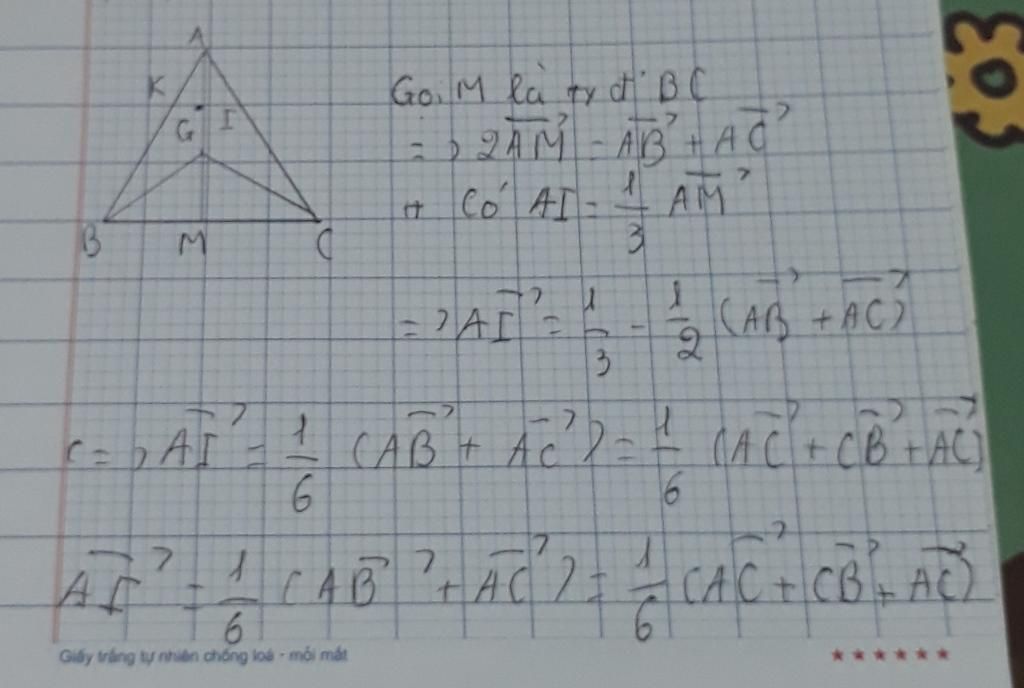 A
K
G I
B M C
Gọi M là tr đ' BC
=> 2AM⃗ = AB⃗ + AC⃗
+ Có AI = 1/3 AM⃗
=> AI⃗ = 1/3 - 1/2 (AB⃗ + AC⃗)
<=> AI⃗ = 1/6 (AB⃗ + AC⃗) = 1/6 (AC⃗ + CB⃗ + AC⃗)
AI⃗ = 1/6 (AB⃗ + AC⃗) = 1/6 (AC⃗ + CB⃗ + AC⃗)
Giấy trắng tự nhiên chống loá - mỏi mắt